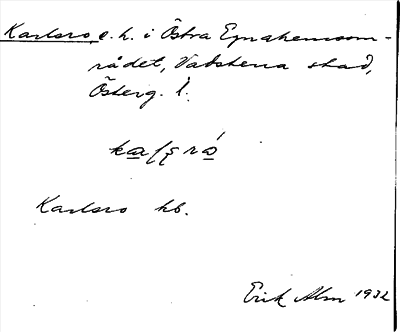 Karlsro, e. h. i Östra Egnahemsom-
rådet, Vadstena stad,
Österg. l.
Karlsro hb.
Erik Alm 1932